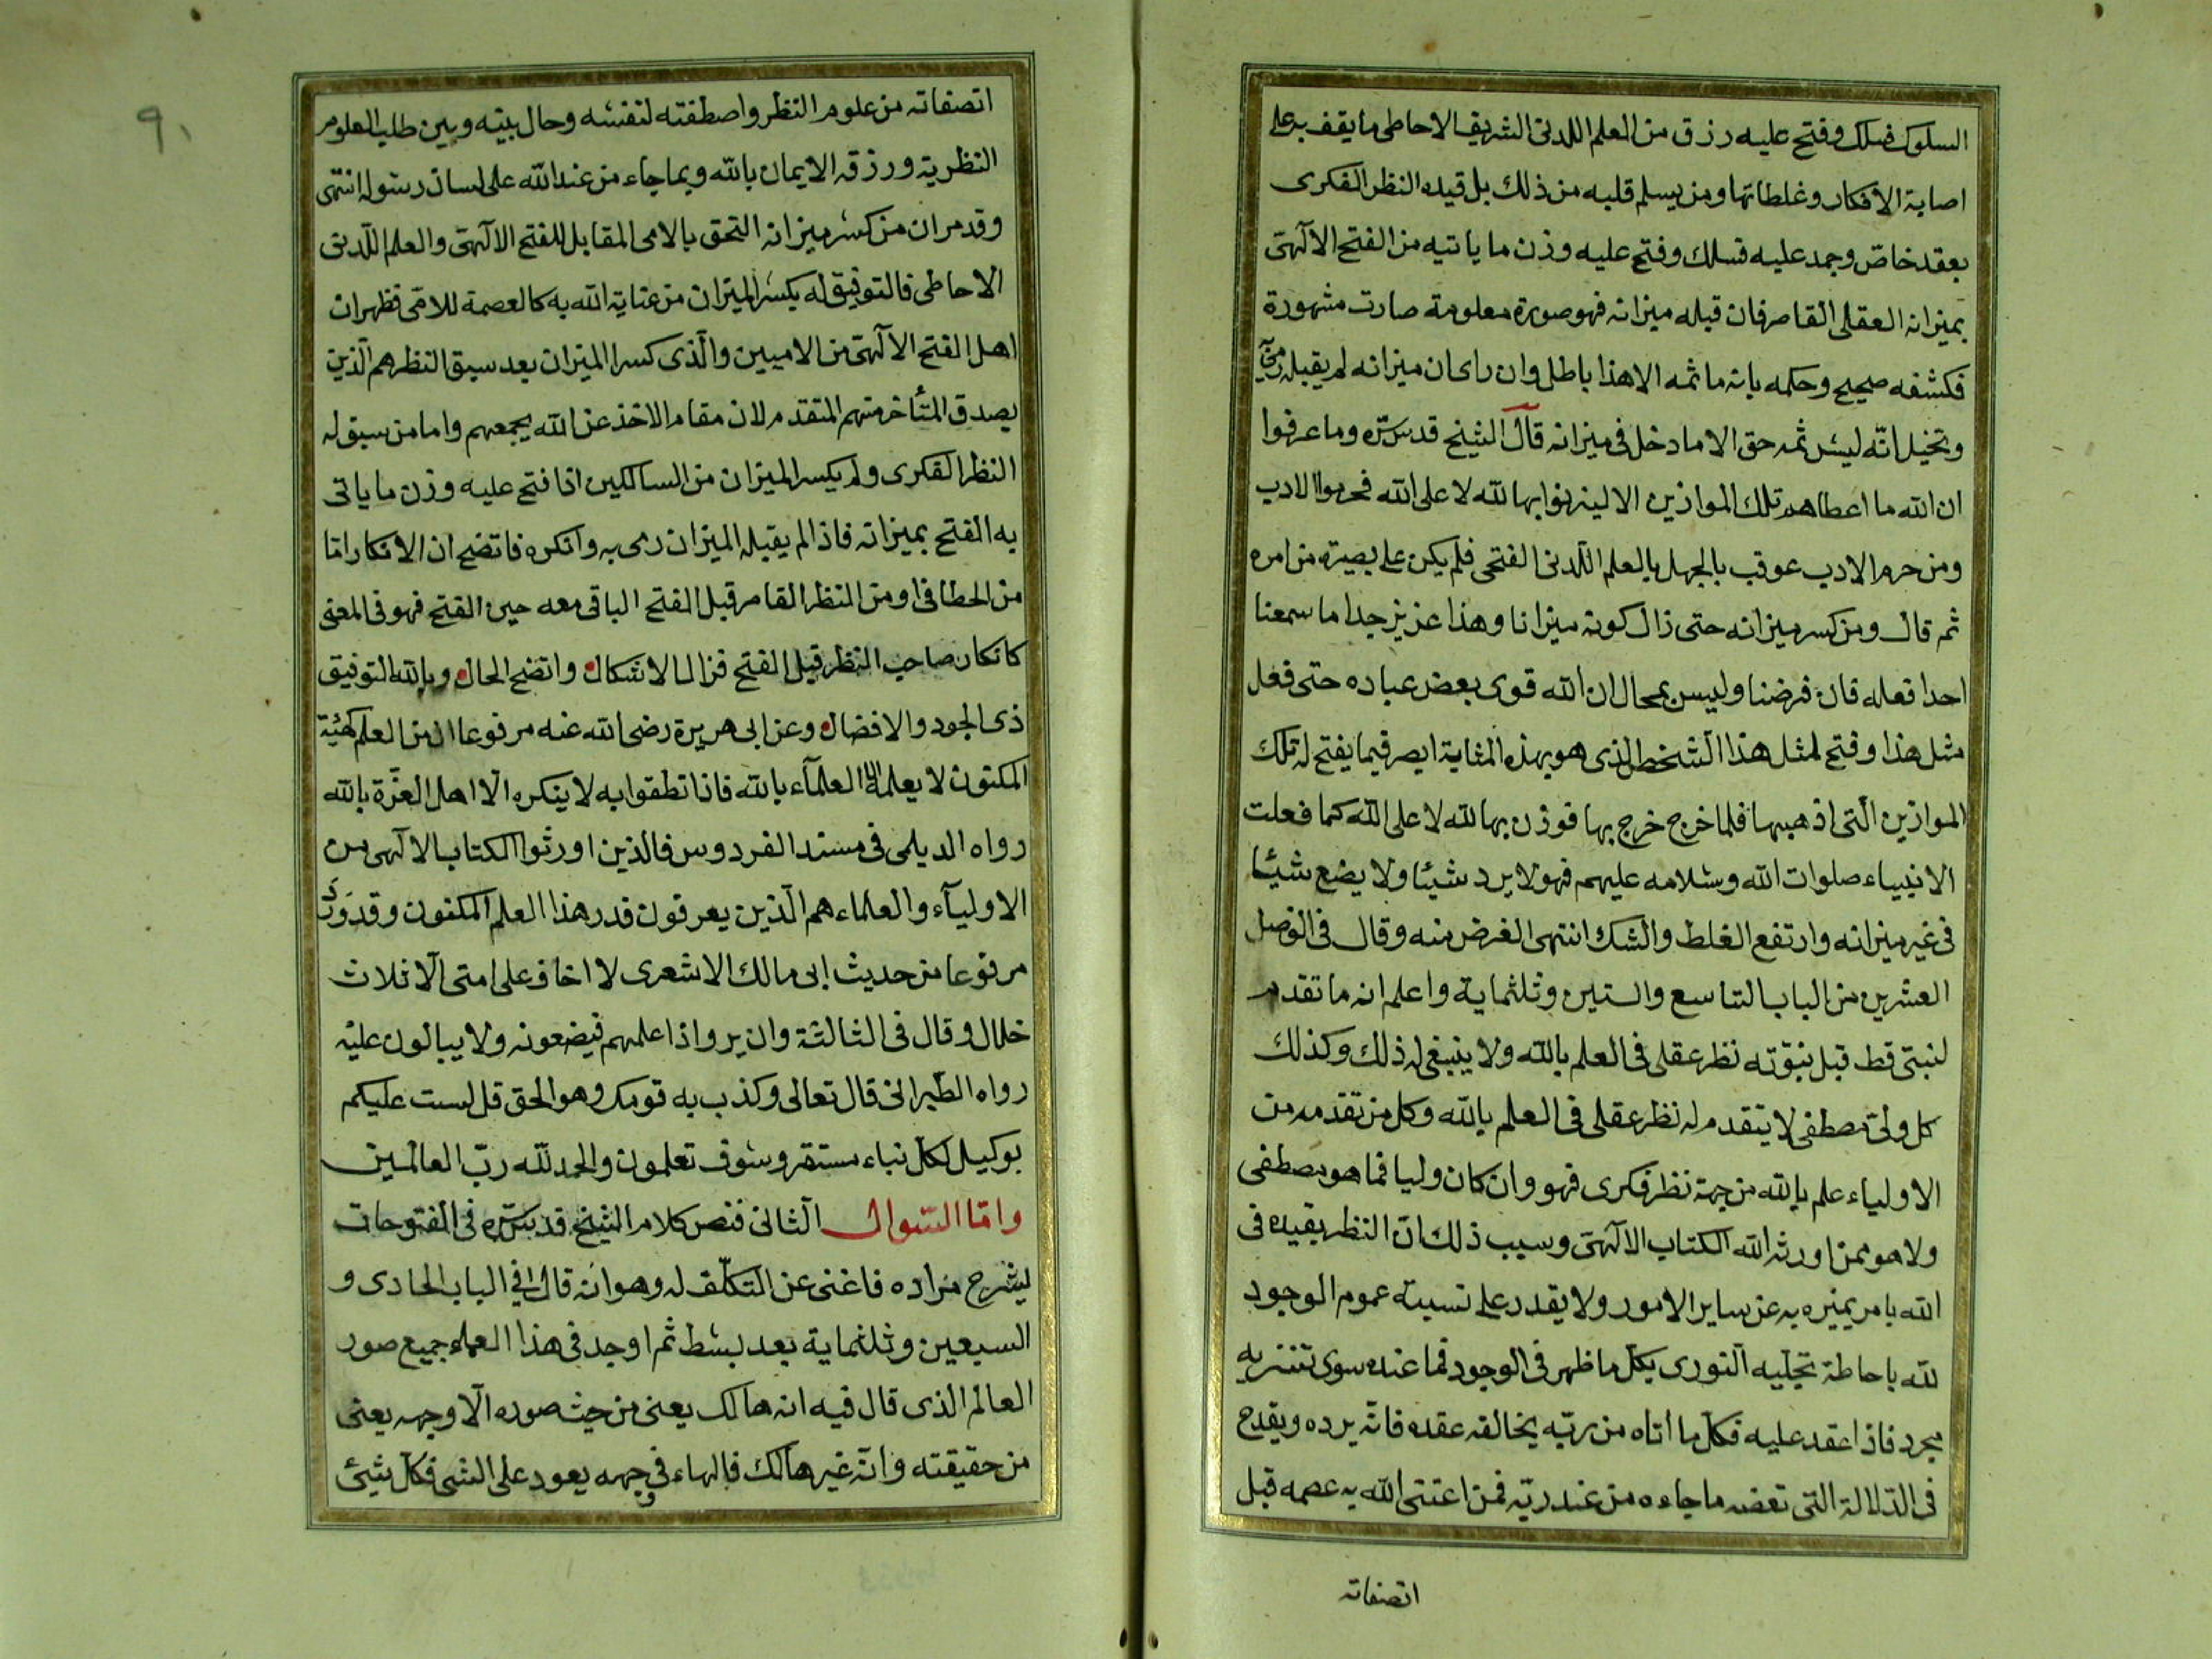 السلوك فسلك وفتح عليه رزق من العلم اللدنى الشريف الاحاطى ما يقف به على
اصابة الافكار وغلطاتها ومن يسلم قلبه من ذلك بل قيده النظر الفكرى
بعقد خاصّ وجمد عليه فسلك وفتح عليه وزن ما ياتيه من الفتح الآلهىّ
بميزانه العقلى القاصر فان قبله ميزانه فهو صورة معلومة صارت مشهورة
فكشفه صحيح وحكمه بانه ما ثمه الا هذا باطل وان راى ان ميزانه لم يقبله
وتخيل انّه ليس ثمه حق الا ما دخل فى ميزانه قال الشيخ قدس سّره وما عرفوا
ان الله ما اعطاهم تلك الموازين الا ليزنوا بها لله لا على الله فحرموا الادب
ومن حرم الادب عوقب بالجهل بالعلم اللّدنى الفتحى فلم يكن على بصيرة من امره
ثم قال ومن كسر ميزانه حتى زال كونه ميزانا وهذا عزيز جدا ما سمعنا
احدا فعله فان فرضنا وليس بمحال ان الله قوى بعض عباده حتى فعل
مثل هذا وفتح لمثل هذا الشخص الذى هو بهذه المثابة ابصر فيما يفتح له تلك
الموازين الّتى اذهبها فلما خرج خرج بها فوزن بها لله لا على الله كما فعلت
الانبياء صلوات الله وسلامه عليهم فهو لا يرد شيئا ولا يضع شيئا
فى غير ميزانه وارتفع الغلط والشك انتهى الغرض منه وقال فى الوصل
العشرين من الباب التاسع والستين وثلثماية واعلم انه ما تقدم
لنبىّ قط قبل نبوّته نظر عقلى فى العلم بالله ولا ينبغى له ذلك وكذلك
كل ولىّ مصطفى لا يتقدم له نظر عقلى فى العلم بالله وكل من تقدمه من
الاولياء علم بالله من جهة نظر فكرى فهو وان كان وليا فما هو مصطفى
ولا هو ممن اورثه الله الكتاب الآلهىّ وسبب ذلك انّ النظر يقيده فى
الله بامر يميزه به عن ساير الامور ولا يقدر على نسبة عموم الوجود
لله باحاطة تجلّيه النورى بكلّ ما ظهر فى الوجود فما عنده سوى تنزيه
مجرد فاذا عقد عليه فكلّ ما اتاه من ربّه يخالف عقده فانّه يرده ويقدح
فى الدّلالة التى تعضد ما جاءه من عند ربّه فمن اعتنى الله به عصمه قبل
اتصفاته
٩٠
اتصفاته من علوم النظر واصطفته لنفسه وحال بينه وبين طلب العلوم
النظرية ورزقه الايمان بالله وبما جاء من عند الله على لسان رسوله انتهى
وقد مر ان من كسر ميزانه التحق بالامى المقابل للفتح الآلهىّ والعلم اللّدنى
الاحاطى فالتوفيق له بكسر الميزان من عناية الله به كالعصمة للامّى فظهر ان
اهل الفتح الآلهىّ من الاميين والّذى كسر الميزان بعد سبق النظر هم الّذين
يصدق المتأخر منهم المتقدم لان مقام الاخذ عن الله يجمعهم واما من سبق له
النظر الفكرى ولم يكسر الميزان من السالكين اذا فتح عليه وزن ما ياتى
به الفتح بميزانه فاذا لم يقبله الميزان رمى به وانكره فاتضح ان الافكار امّا
من الخطا فى او من النظر القاصر قبل الفتح الباقى معه حين الفتح فهو فى المعنى
كانكار صاحب النظر قبل الفتح فزال الاشكال واتضح الحال وبالله التوفيق
ذى الجود والافضال وعن ابى هريرة رضى الله عنه مرفوعا ان من العلم كهيئة
المكنون لا يعلمه الا العلمآء بالله فاذا نطقوا به لا ينكره الّا اهل الغرّة بالله
رواه الديلمى فى مسند الفردوس فالذين اورثوا الكتاب الالهى من
الاوليآء والعلماء هم الّذين يعرفون قدر هذا العلم المكنون وقد ورد
مرفوعا من حديث ابى مالك الاشعرى لا اخاف على امتى الّا ثلاث
خلال وقال فى الثالثة وان يروا ذا علمهم فيضعونه ولا يبالون عليه
رواه الطّبرانى قال تعالى وكذب به قومك وهو الحق قل لست عليكم
بوكيل لكل نباء مستقر وسوف تعلمون والحمد لله ربّ العالمين
وامّا السّوال الثانى فنص كلام الشيخ قدس سرّه فى الفتوحات
ليشرح مراده فاغنى عن التكلّف له وهو انه قال فى الباب الحادى و
السبعين وثلثماية بعد بسط ثم اوجد فى هذا العماء جميع صور
العالم الذى قال فيه انه هالك يعنى من حيث صوره الّا وجهه يعنى
من حقيقته وانّه غير هالك فالهاء فى وجهه يعود على الشى فكلّ شيئ